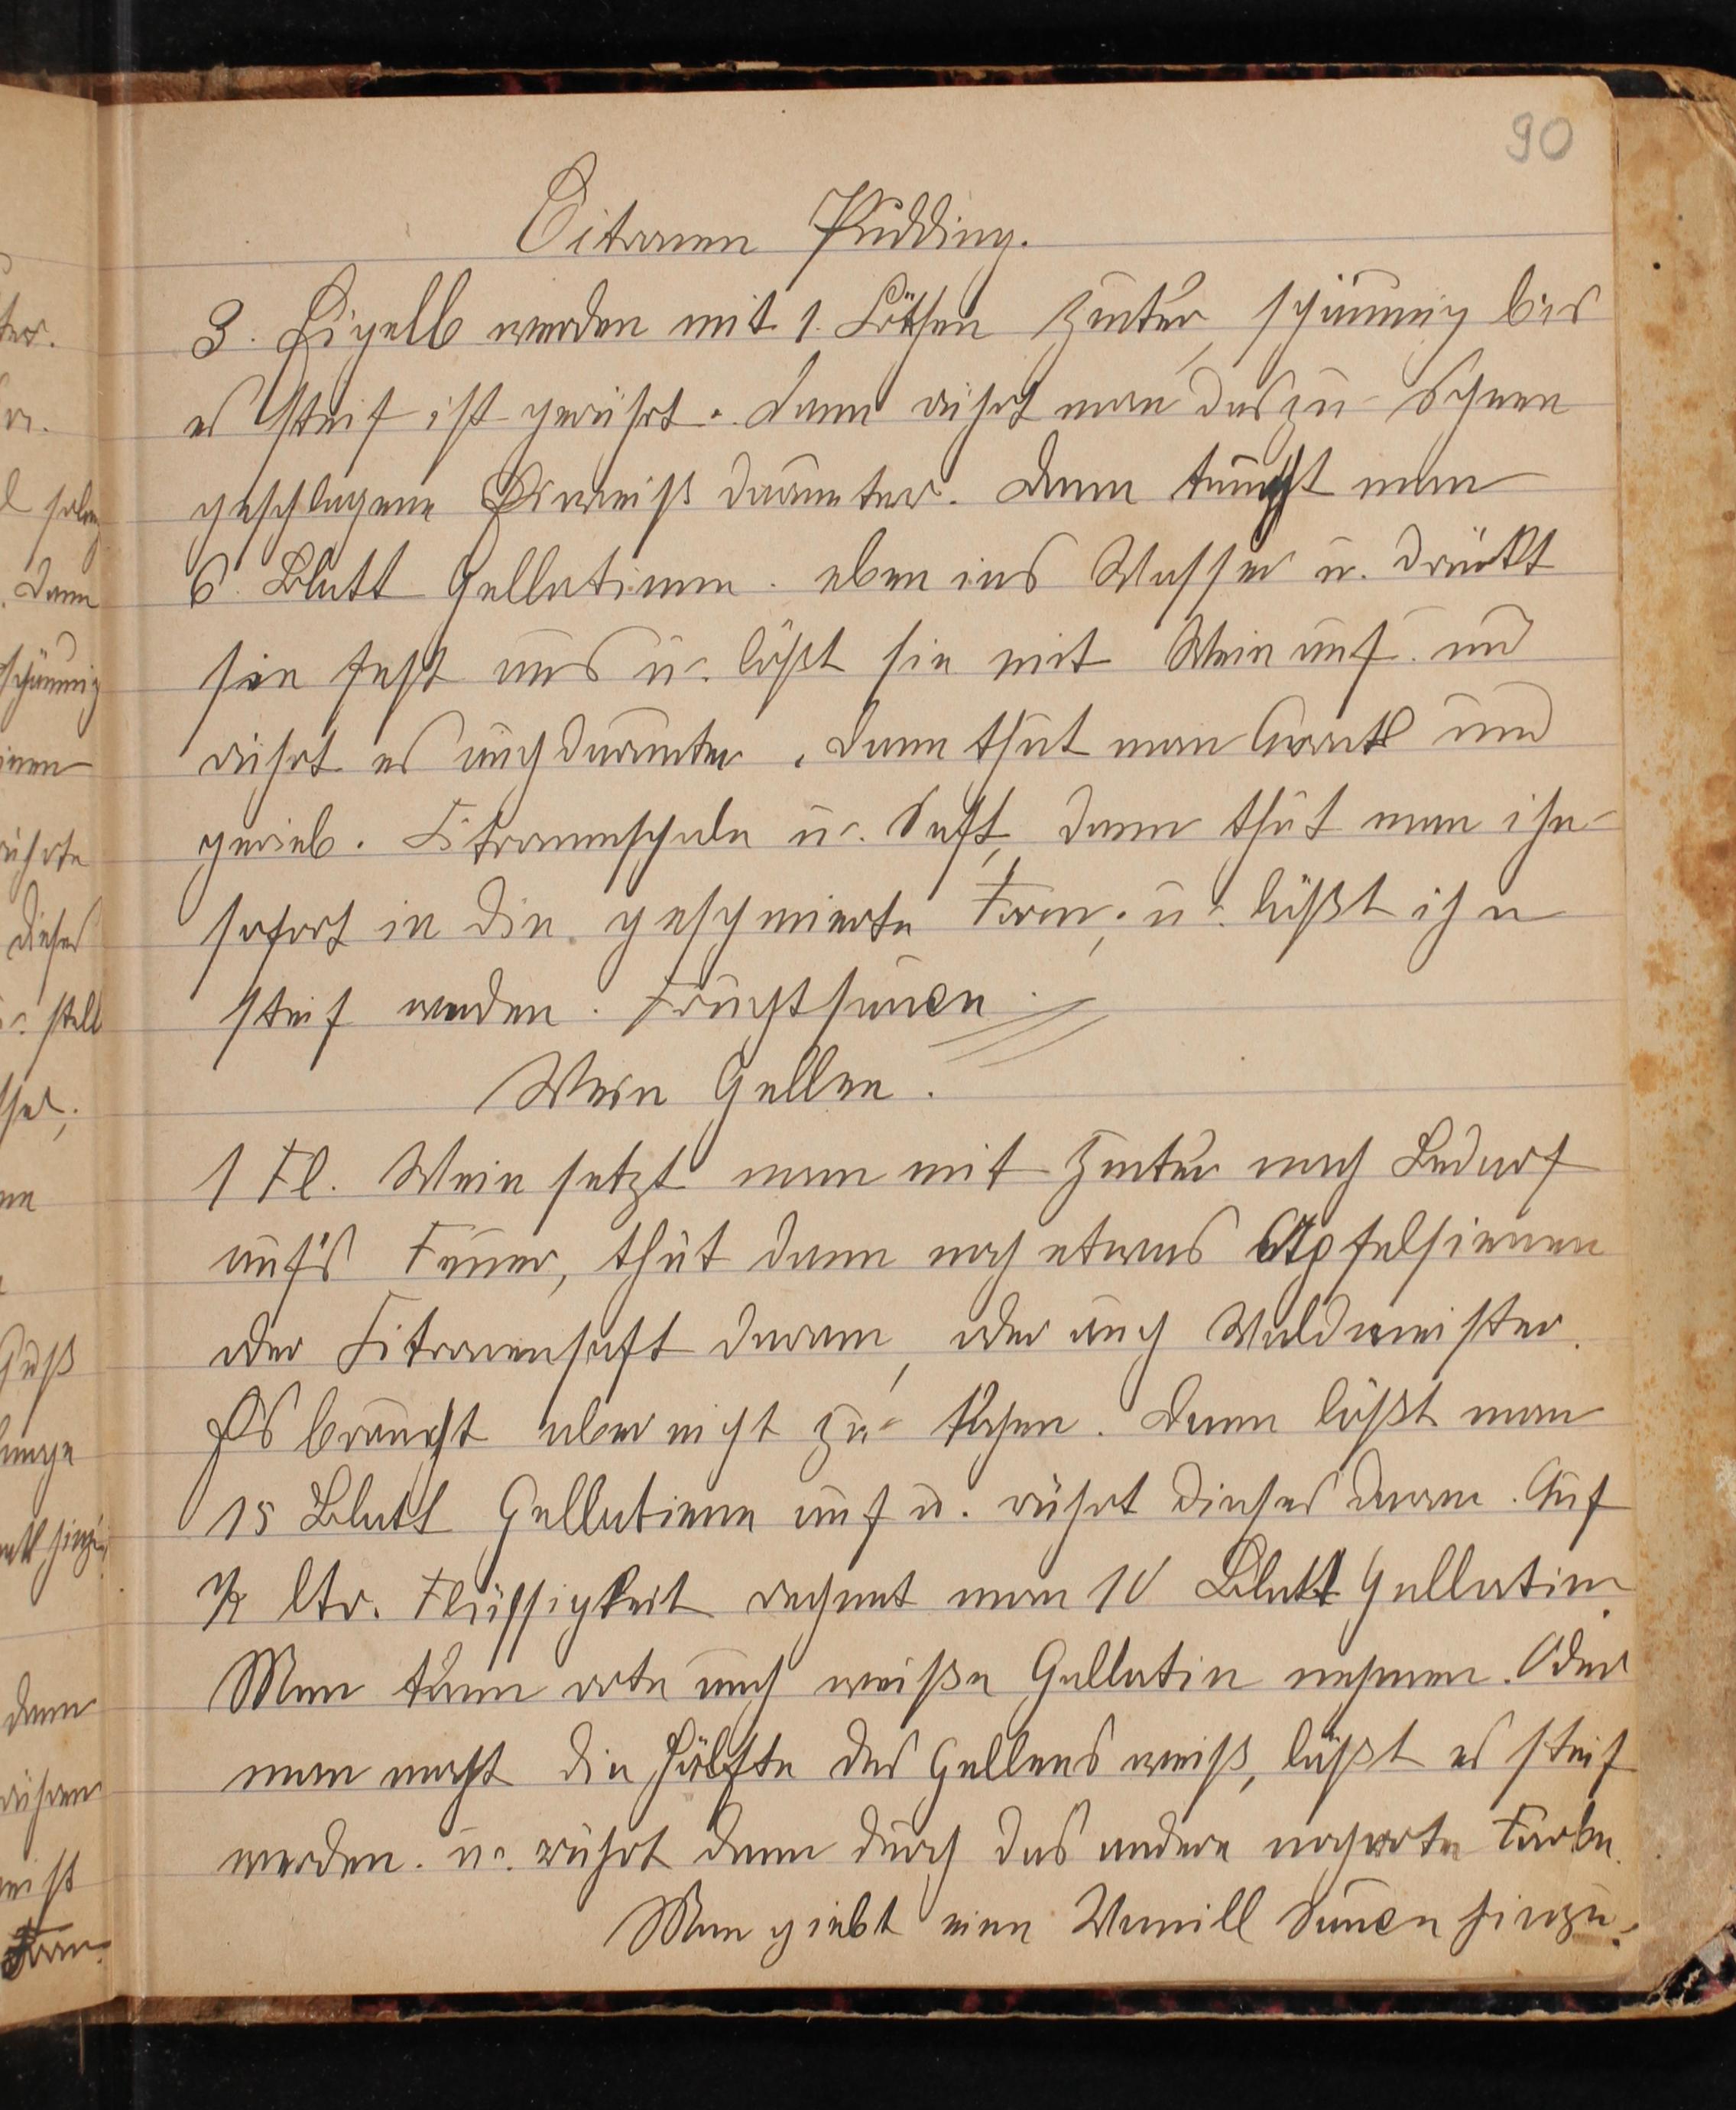 90
Citronen Pudding.
3. Eigelb werden mit 1. Löthen Zucker, schäumig bis
es steif ist gerührt. Dann rührt man das zu Schnee
geschlagene Eiweiß darunter. Dann taucht man
6 Blatt Gellatinne. eben ins Wasser u. drückt
sie fest aus u. lößt sie mit Wein auf. und
rührt es auch darunter, dann thut man Arrak und
gerieb. Citronenschale u. Saft, dann thut man ihn
sofort in die geschmierte Form; u. läßt ihn
steif werden. Fruchtsauce.
Wein Gellee.
1 Fl. Wein setzt man mit Zucker nach Bedarf
auf's Feuer, thut dann noch etwas Apfelsienen
oder Citronensaft daran, oder auch Waldmeister.
Es braucht aber nicht zu kochen. Dann lößt man
15 Blatt Gellatinne auf u. rührt dieses daran. Auf
ltr. Flüssigkeit rechnet man 10 Blatt Gellatine.
Man kann rote auch weiße Gellatin nehmen. Oder
man macht die Hälfte des Gellees weiß, läßt es steif
werden. u. rührt dann durch das andere noch rote Farbe.
Man giebt eine Wanill Sauce hinzu.